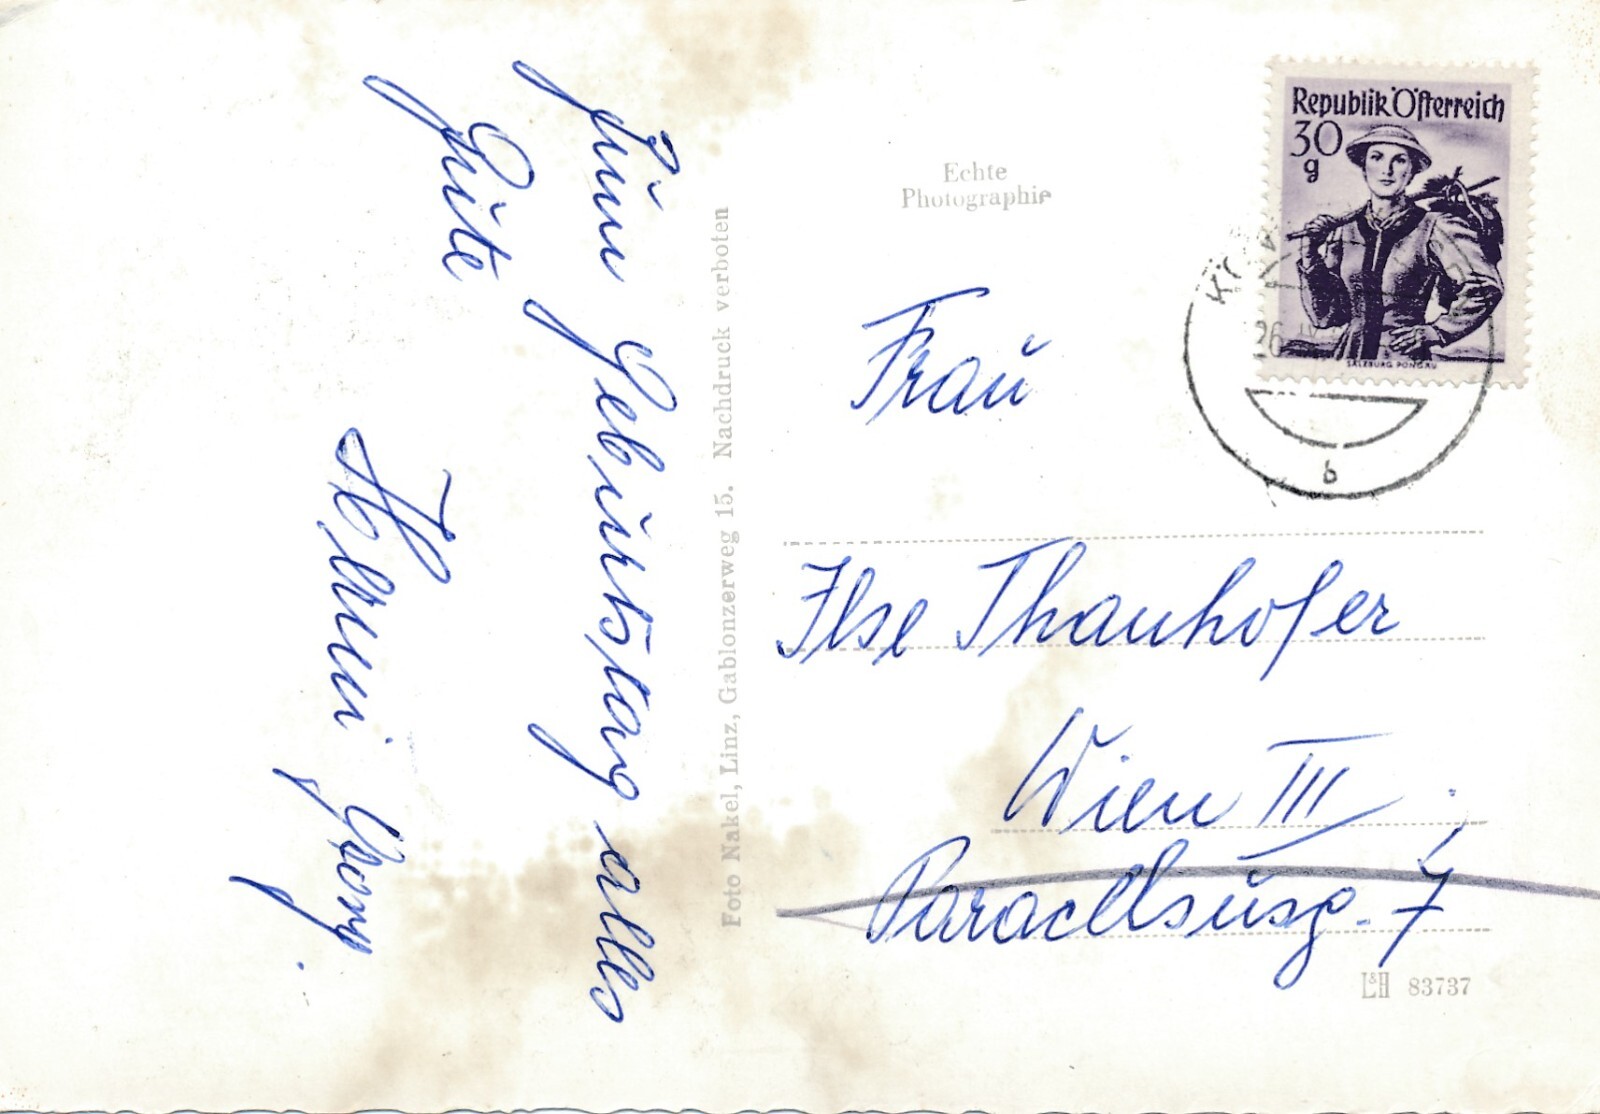 Zum Geburtstag alles
Gute
Foto Nakel, Linz, Gablonzerweg 15. Nachdruck verboten
Echte
Photographie
Republik Österreich
30
g
SALZBURG PONGAU
26
b
Frau
Ilse Thanhofer
Wien III.
Paracelsusg. 7
L&H 83737